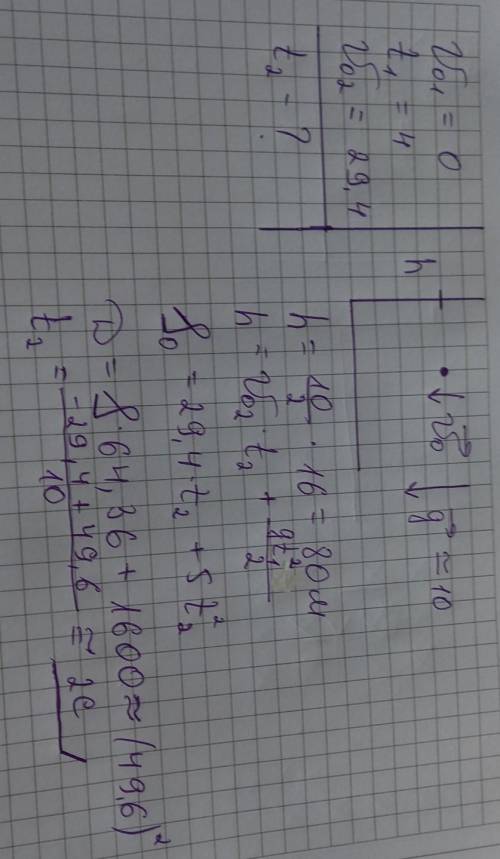 v₀₁ = 0
t₁ = 4
v₀₂ = 29,4
t₂ - ?
h
v⃗₀ g⃗ = 10
h = 10/2 · 16 = 80 м
h = v₀₂ · t₂ + gt₂²/2
80 = 29,4 · t₂ + 5t₂²
D = 864,36 + 1600 ≈ (49,6)²
t₂ = (-29,4 + 49,6)/10 ≈ 2с